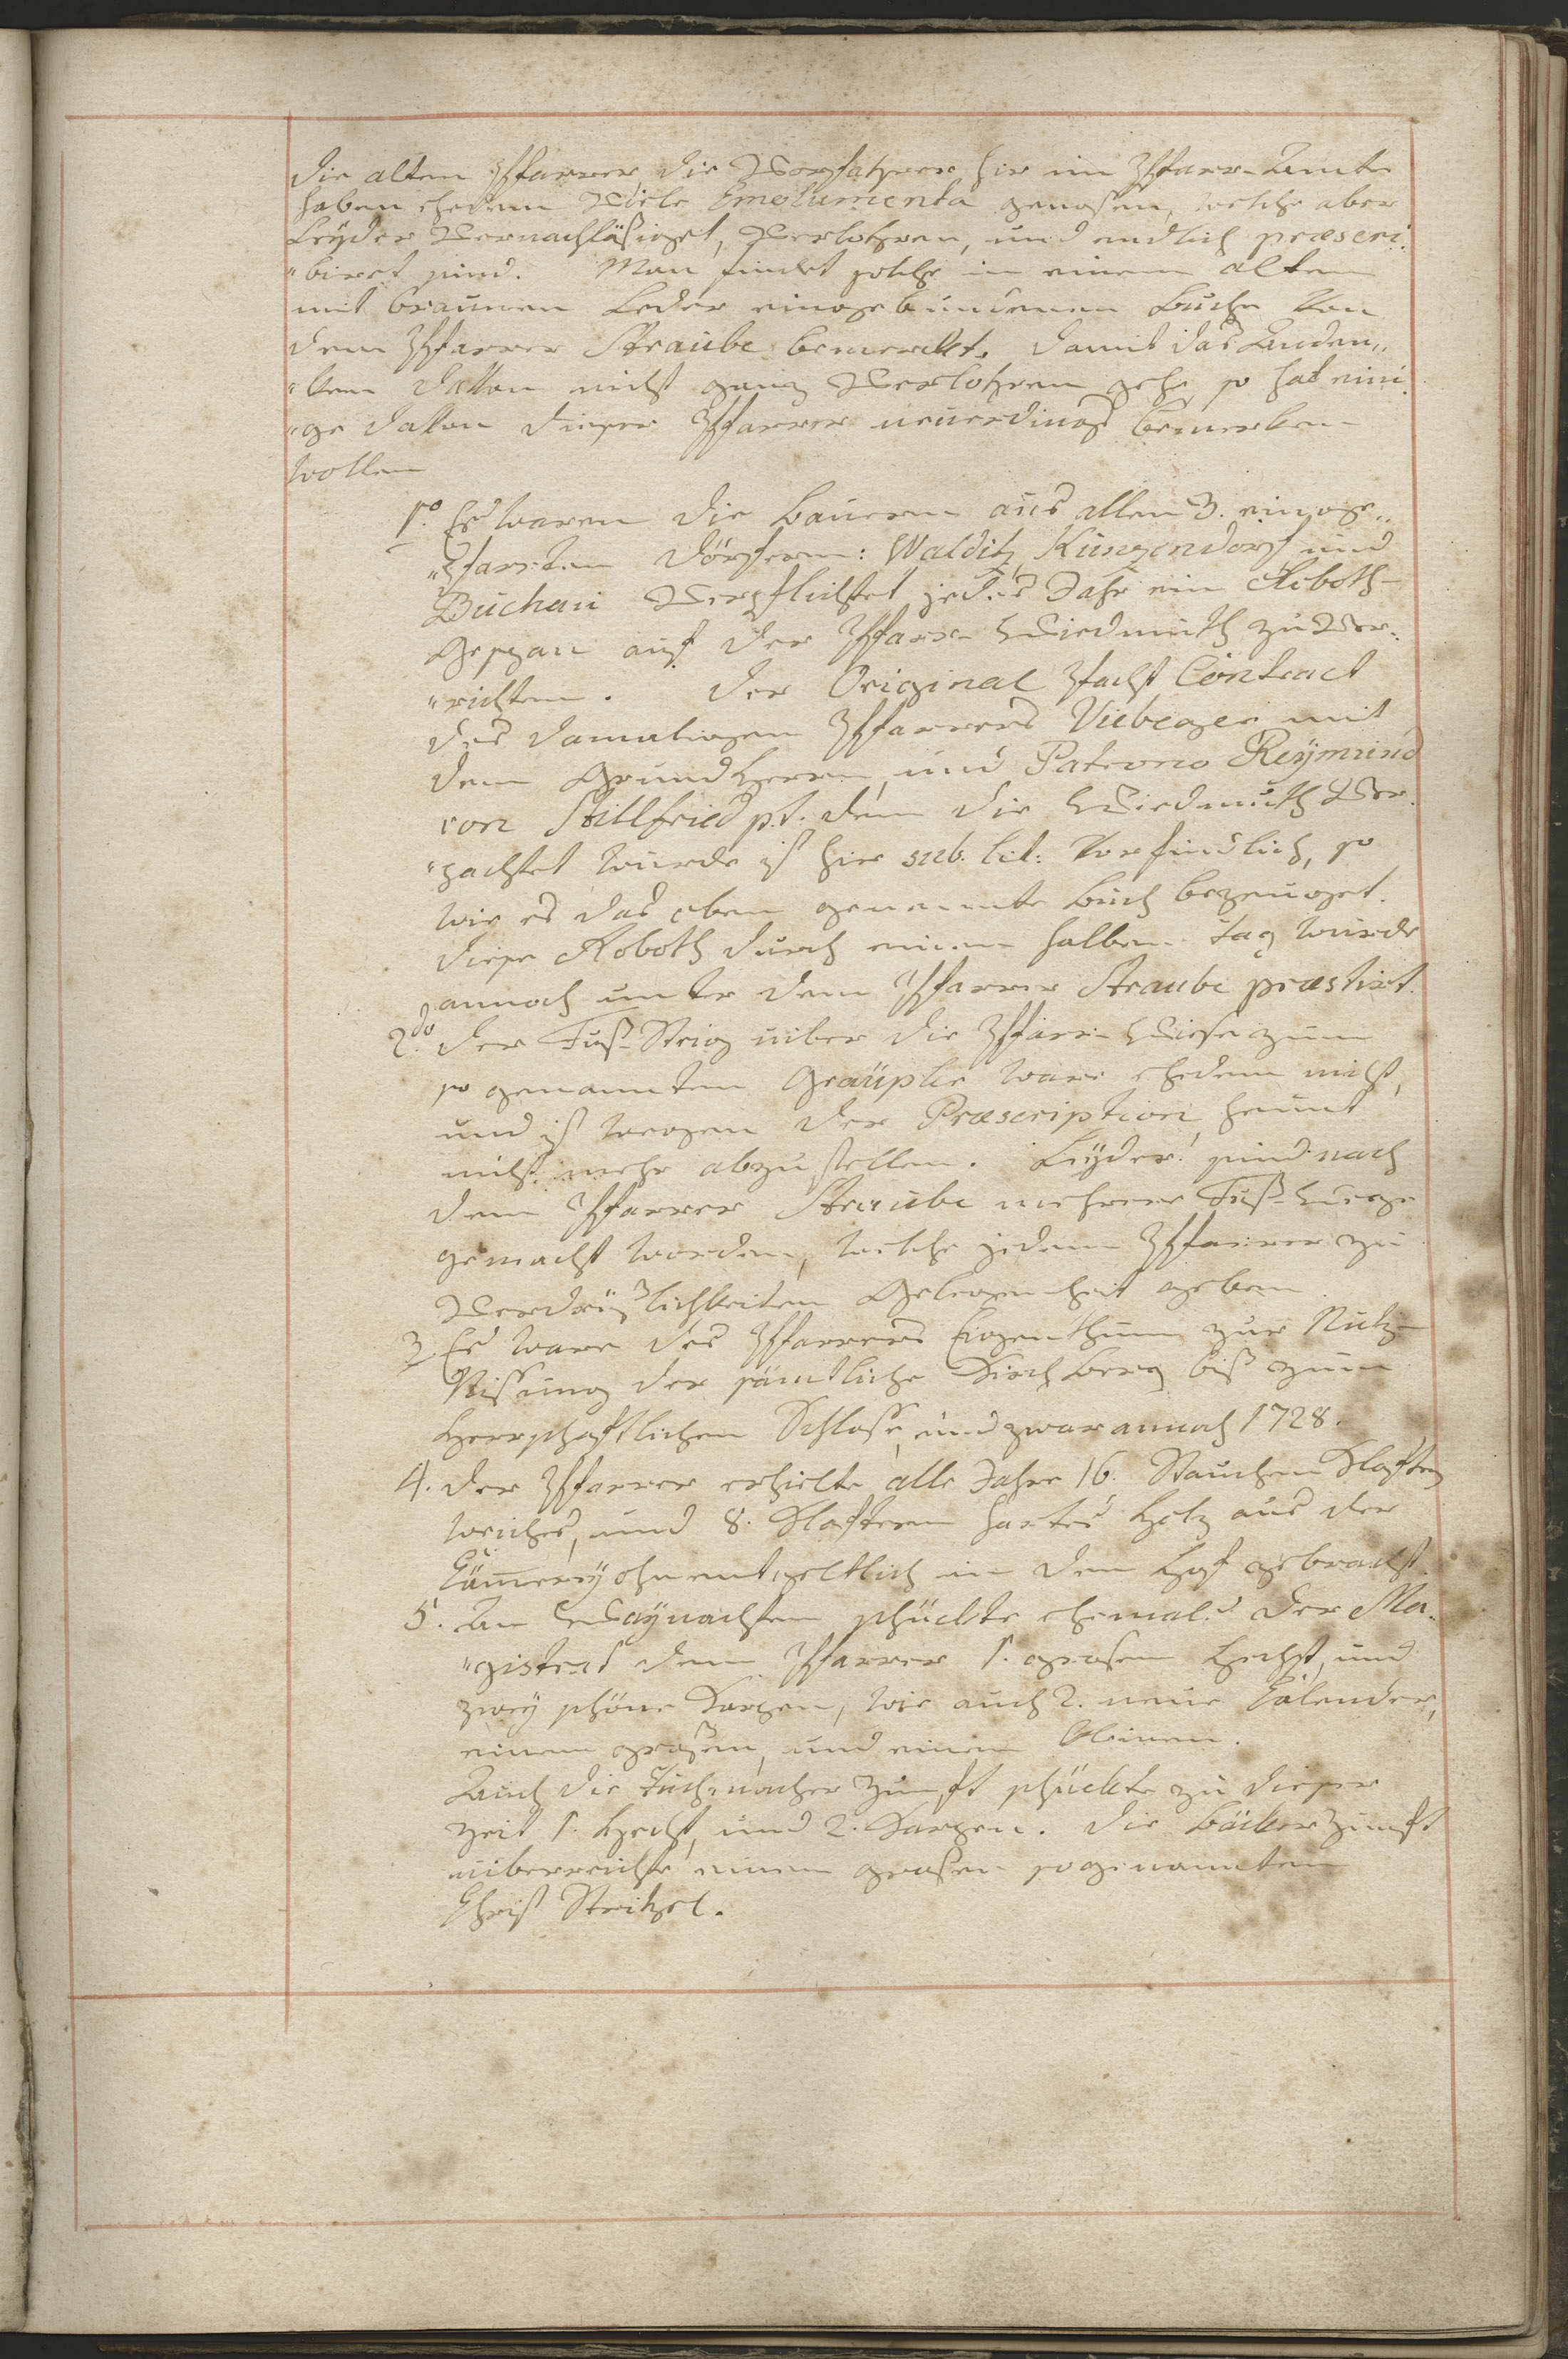 Die alten Pfarrer die Vorfahrer hir im Pfarr-Amte
haben ehedem Viele Emolumenta genoßen, welche aber
Leÿder Vernachläßiget, Verlohren, und endlich præscri„
„biret sind. Man findet solche in einem alten
mit braunen Leder eingebundenen Buche von
dem Pfarrer Straube bemerckt. Damit das Anden„
„ken davon nicht ganz Verlohren gehe, so hat eini„
„ge davon dieser Pfarrer neuerdings bemerken
wollen
1º. Es waren die Bauern aus allen 3. einge„
„Pfarrten Dörfern: Walditz, Kunzendorf und
Buchau Verpflichtet jedes Jahr ein Roboth-
Gespan auf der Pfarr-Wiedmuth zu Ver„
„richten. Der Original Pacht Contract
des damaligen Pfarrers Vieberger mit
dem Grundherrn, und Patrono Reÿmund
von Stillfried p.t. dem die Wiedmuth Ver„
„pachtet wurde ist hier sub. lit: Vorfindlich, so
wie es das eben genennte Buch bezeuget.
Diese Roboth durch einen halben Tag wurde
annoch unter dem Pfarrer Straube præstirt.
2do. Der Fuß-Steig uiber die Pfarr-Wiese zum
so genannten Graüpler ware ehedem nicht,
und ist wegen der Præscription heunt
nicht mehr abzustellen. Leÿder! sind nach
dem Pfarrer Straube mehrere Fuß-Weege
gemacht worden, welche jedem Pfarrer zu
Verdrüßlichkeiten Gelegenheit geben.
3. Es ware des Pfarrers Eigenthum zur Nutz-
Nißung der sämtliche Kirchberg biß zum
Herrschaftlichen Schloße, und zwar annoch 1728.
4. Der Pfarrer erhielte alle Jahre 16. Klaftern
weiches, und 8. Klaftern hartes Holz aus der
Cämmereÿ ohnentgeltlich in den Hof gebracht.
5. An Waÿnachten schückte ehemals der Ma„
„gistrat dem Pfarrer 1. großen Hecht, und
zweÿ schöne Karpen, wie auch 2. neue Calender,
einen großen, und einen kleinen.
Auch die Tuchmacher Zunft schückte zu dieser
Zeit 1. Hecht, und 2. Karpen. Die Bäcker Zunft
uiberreichte einen großen sogenannten
Christ Stritzel.